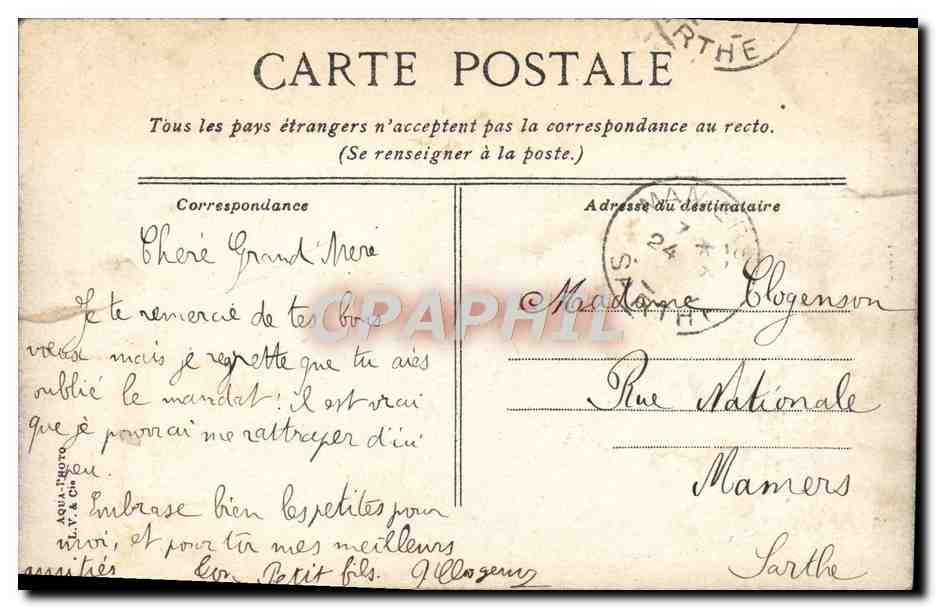 RTHE
CARTE POSTALE
Tous les pays étrangers n'acceptent pas la correspondance au recto.
(Se renseigner à la poste.)
Correspondance
Cheré Grand'Meré
Je te remercie de tes bons
voeux mais je regrette que tu aies
oublié le mandat! il est vrai
que je pourrai me rattraper d'ici
peu.
Embrase bien les petites pour
moi, et pour toi mes meilleurs
amitiés Ton Petit fils.
AQUA-PHOTO
L. V. & Cie
Adresse du destinataire
MAMERS
24
Madame Clogenson
Rue Nationale
Mamers
Sarthe
CPAPHIL